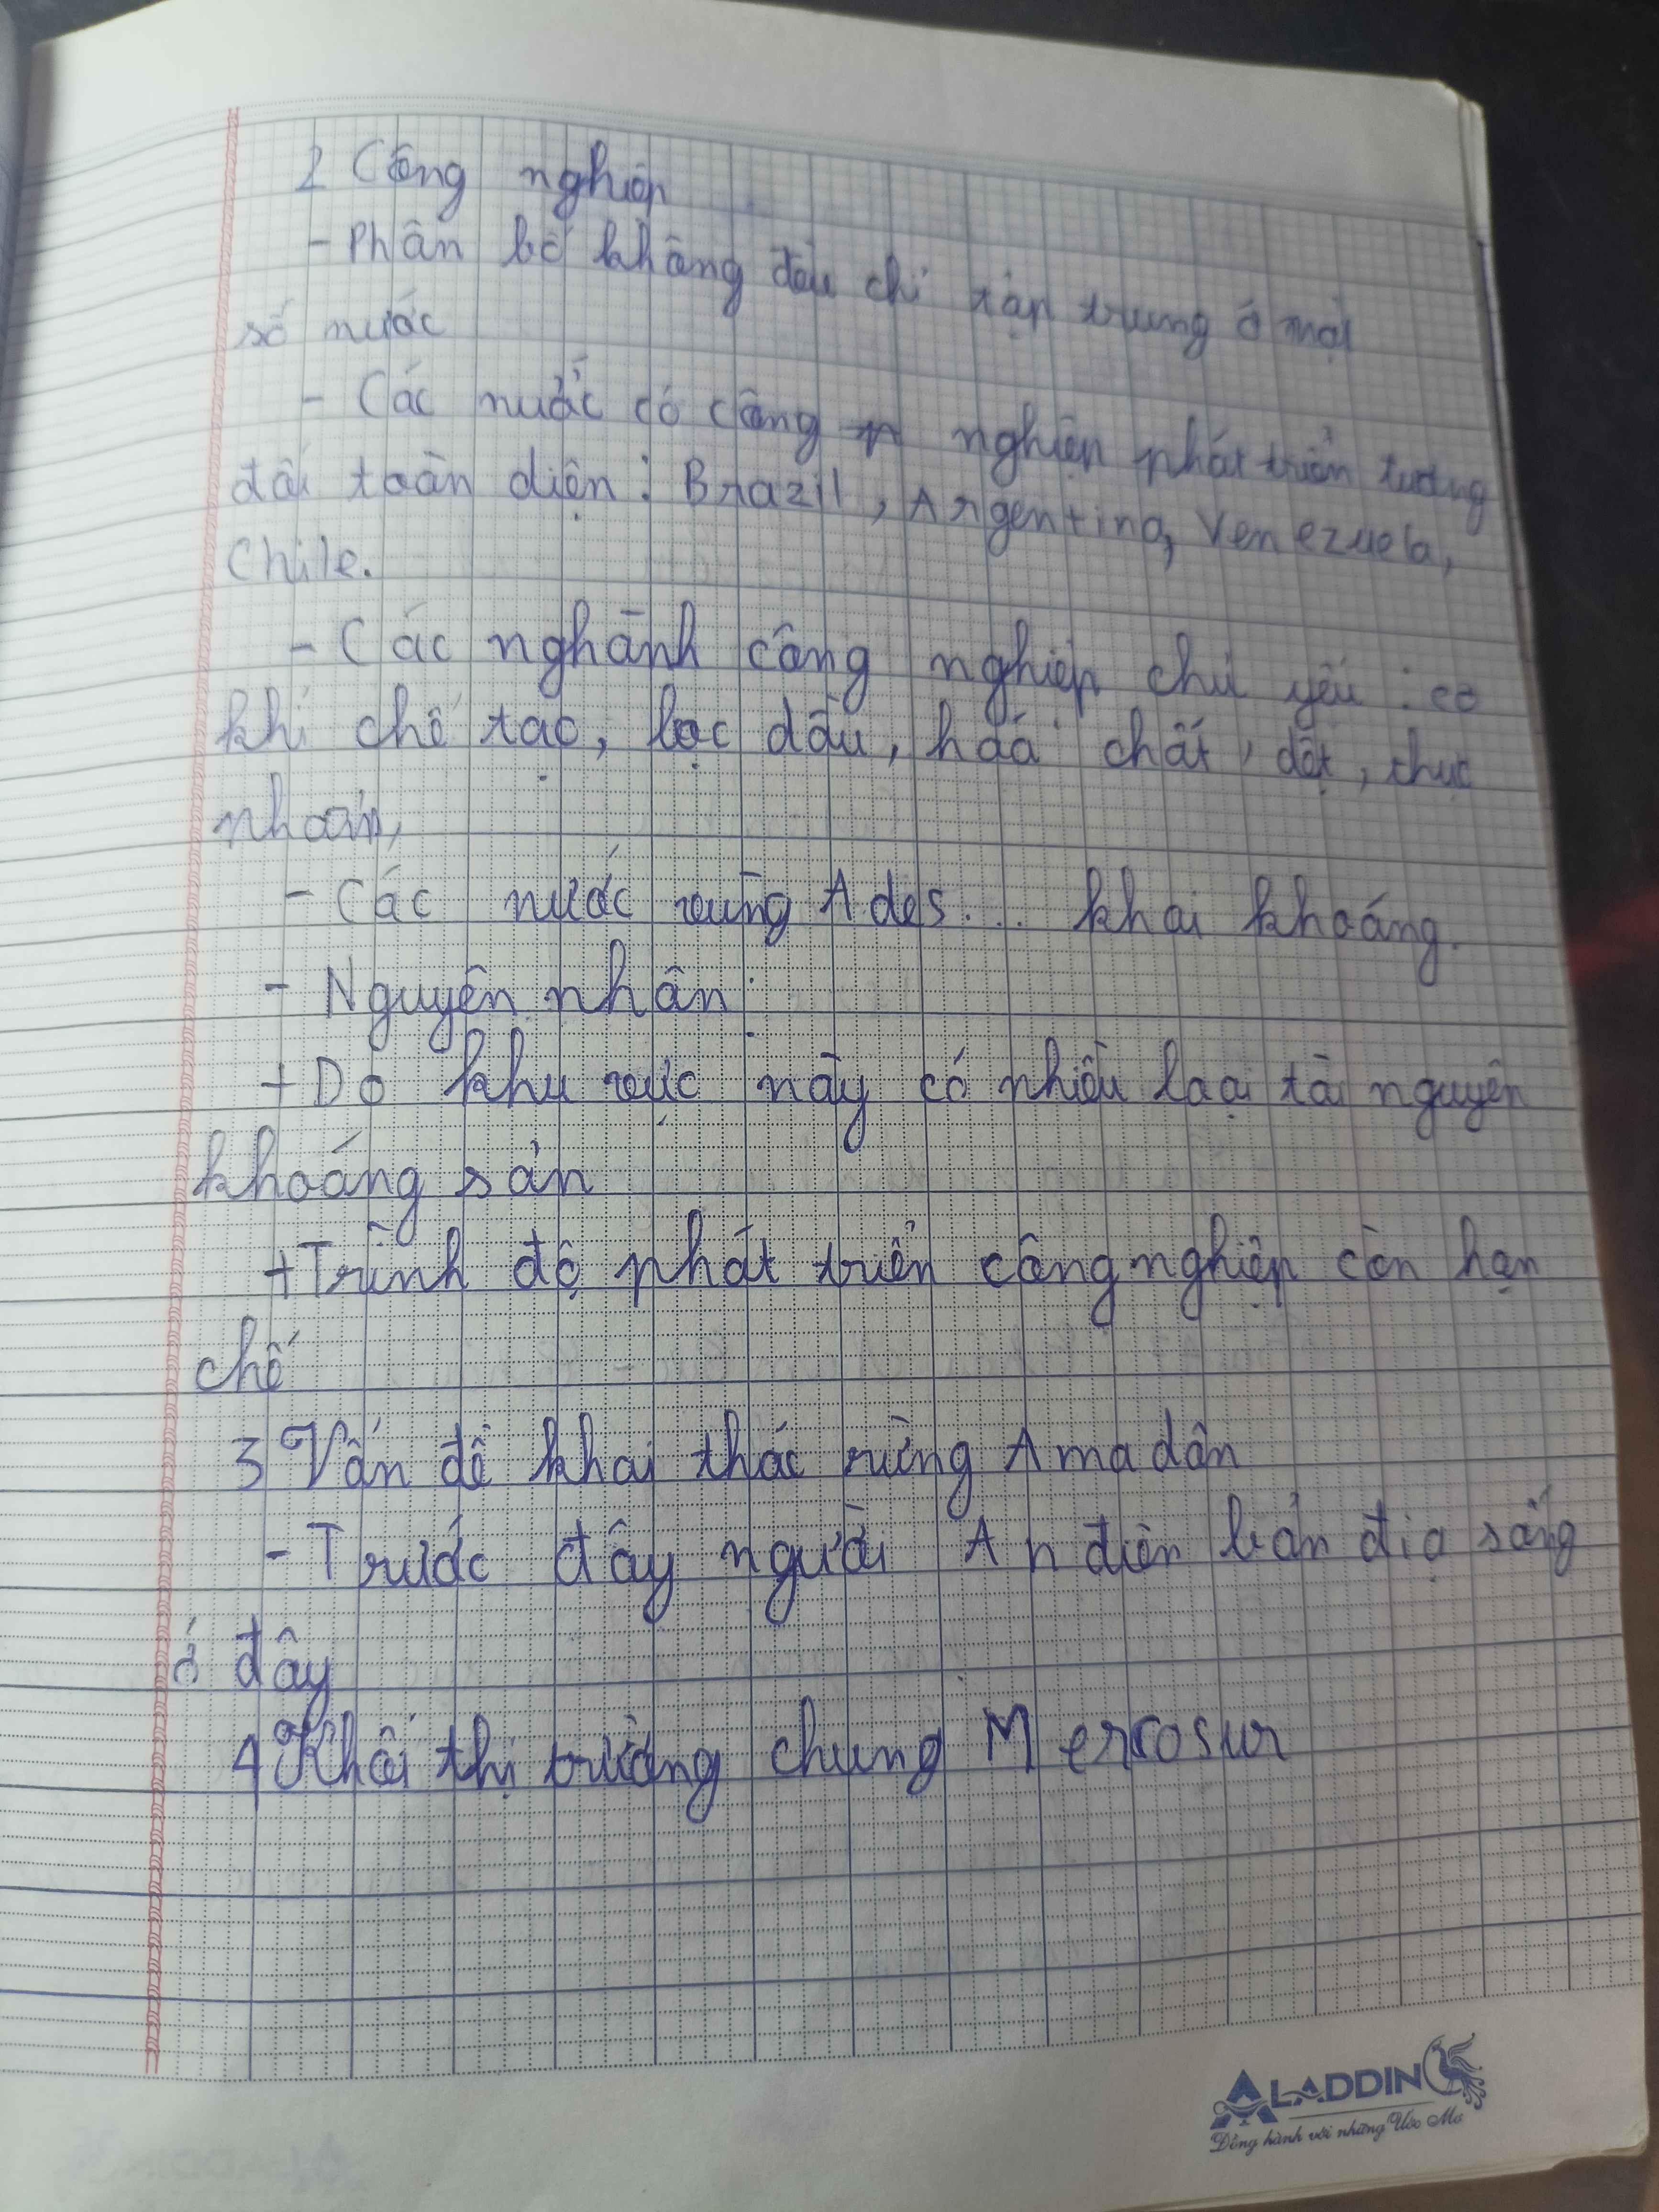 2 Công nghiệp
- Phân bố không đều chỉ tập trung ở một
số nước
- Các nước có công nghiệp phát triển tương
đối toàn diện : Brazil, Argentina, Venezuela,
Chile.
- Các nghành công nghiệp chủ yếu : cơ
khí chế tạo, lọc dầu, hóa chất, dệt, thực
- Các nước vùng Ades... khai khoáng.
- Nguyên nhân :
+ Do khu vực này có nhiều loại tài nguyên
khoáng sản
+ Trình độ phát triển công nghiệp còn hạn
chế
3 Vấn đề khai thác rừng Amadôn
- Trước đây người An điên bản địa sống
ở đây
4 Khối thị trường chung Mercosur
ALADDIN
Đồng hành với những Ước Mơ